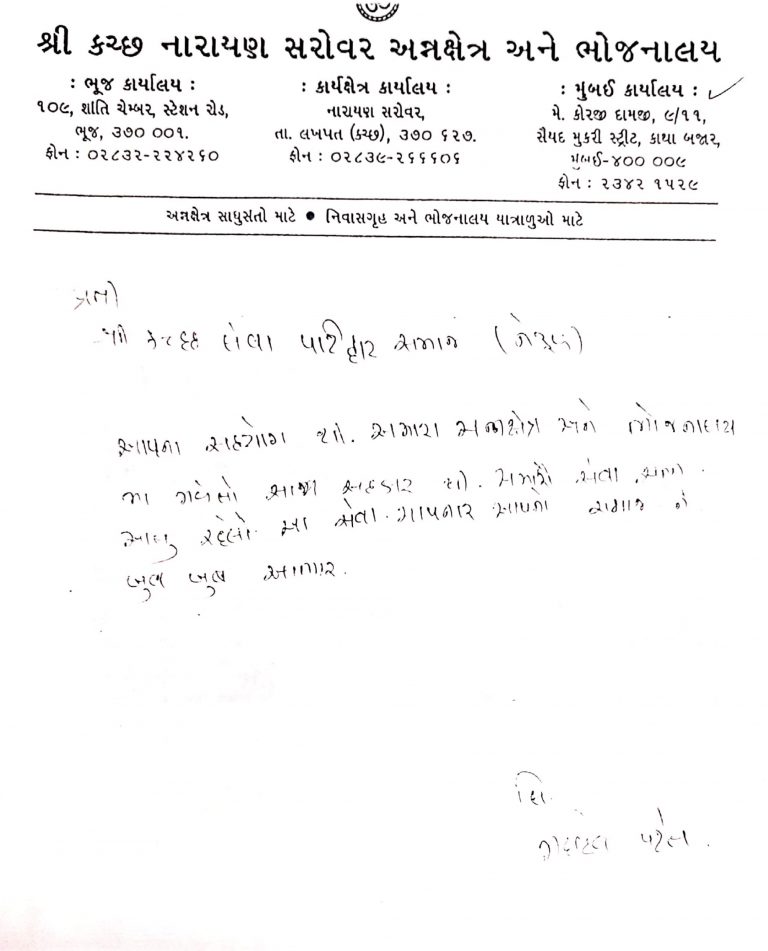 શ્રી કચ્છ નારાયણ સરોવર અન્નક્ષેત્ર અને ભોજનાલય
: ભૂજ કાર્યાલય :
૧૦૯, શાંતિ ચેમ્બર, સ્ટેશન રોડ,
ભૂજ, ૩૭૦ ૦૦૧.
ફોન : ૦૨૮૩૨-૨૨૪૨૬૦
: કાર્યક્ષેત્ર કાર્યાલય :
નારાયણ સરોવર,
તા. લખપત (કચ્છ), ૩૭૦ ૬૨૭.
ફોન : ૦૨૮૩૯-૨૬૬૬૦૬
: મુંબઈ કાર્યાલય :
મે. કોરજી દામજી, ૯/૧૧,
સૈયદ મુકરી સ્ટ્રીટ, કાથા બજાર,
મુંબઈ-૪૦૦ ૦૦૯
ફોન : ૨૩૪૨ ૧૫૨૯
અન્નક્ષેત્ર સાધુસંતો માટે ● નિવાસગૃહ અને ભોજનાલય યાત્રાળુઓ માટે
પ્રતી
શ્રી સેવા સમાજ
આપના સહયોગ થી. અમારા અન્નક્ષેત્ર અને ભોજનાલય
મા સહકાર થી. સેવા
સેવા આપનાર આપના સમાજ ને
ખુબ ખુબ આભાર.
લિ.
પટેલ.